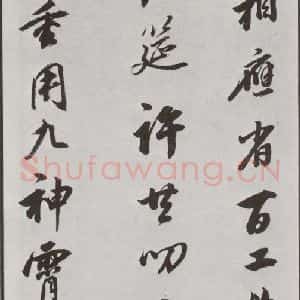 相應省百工
筵許共叨
用九神霄
Shufawang.CN